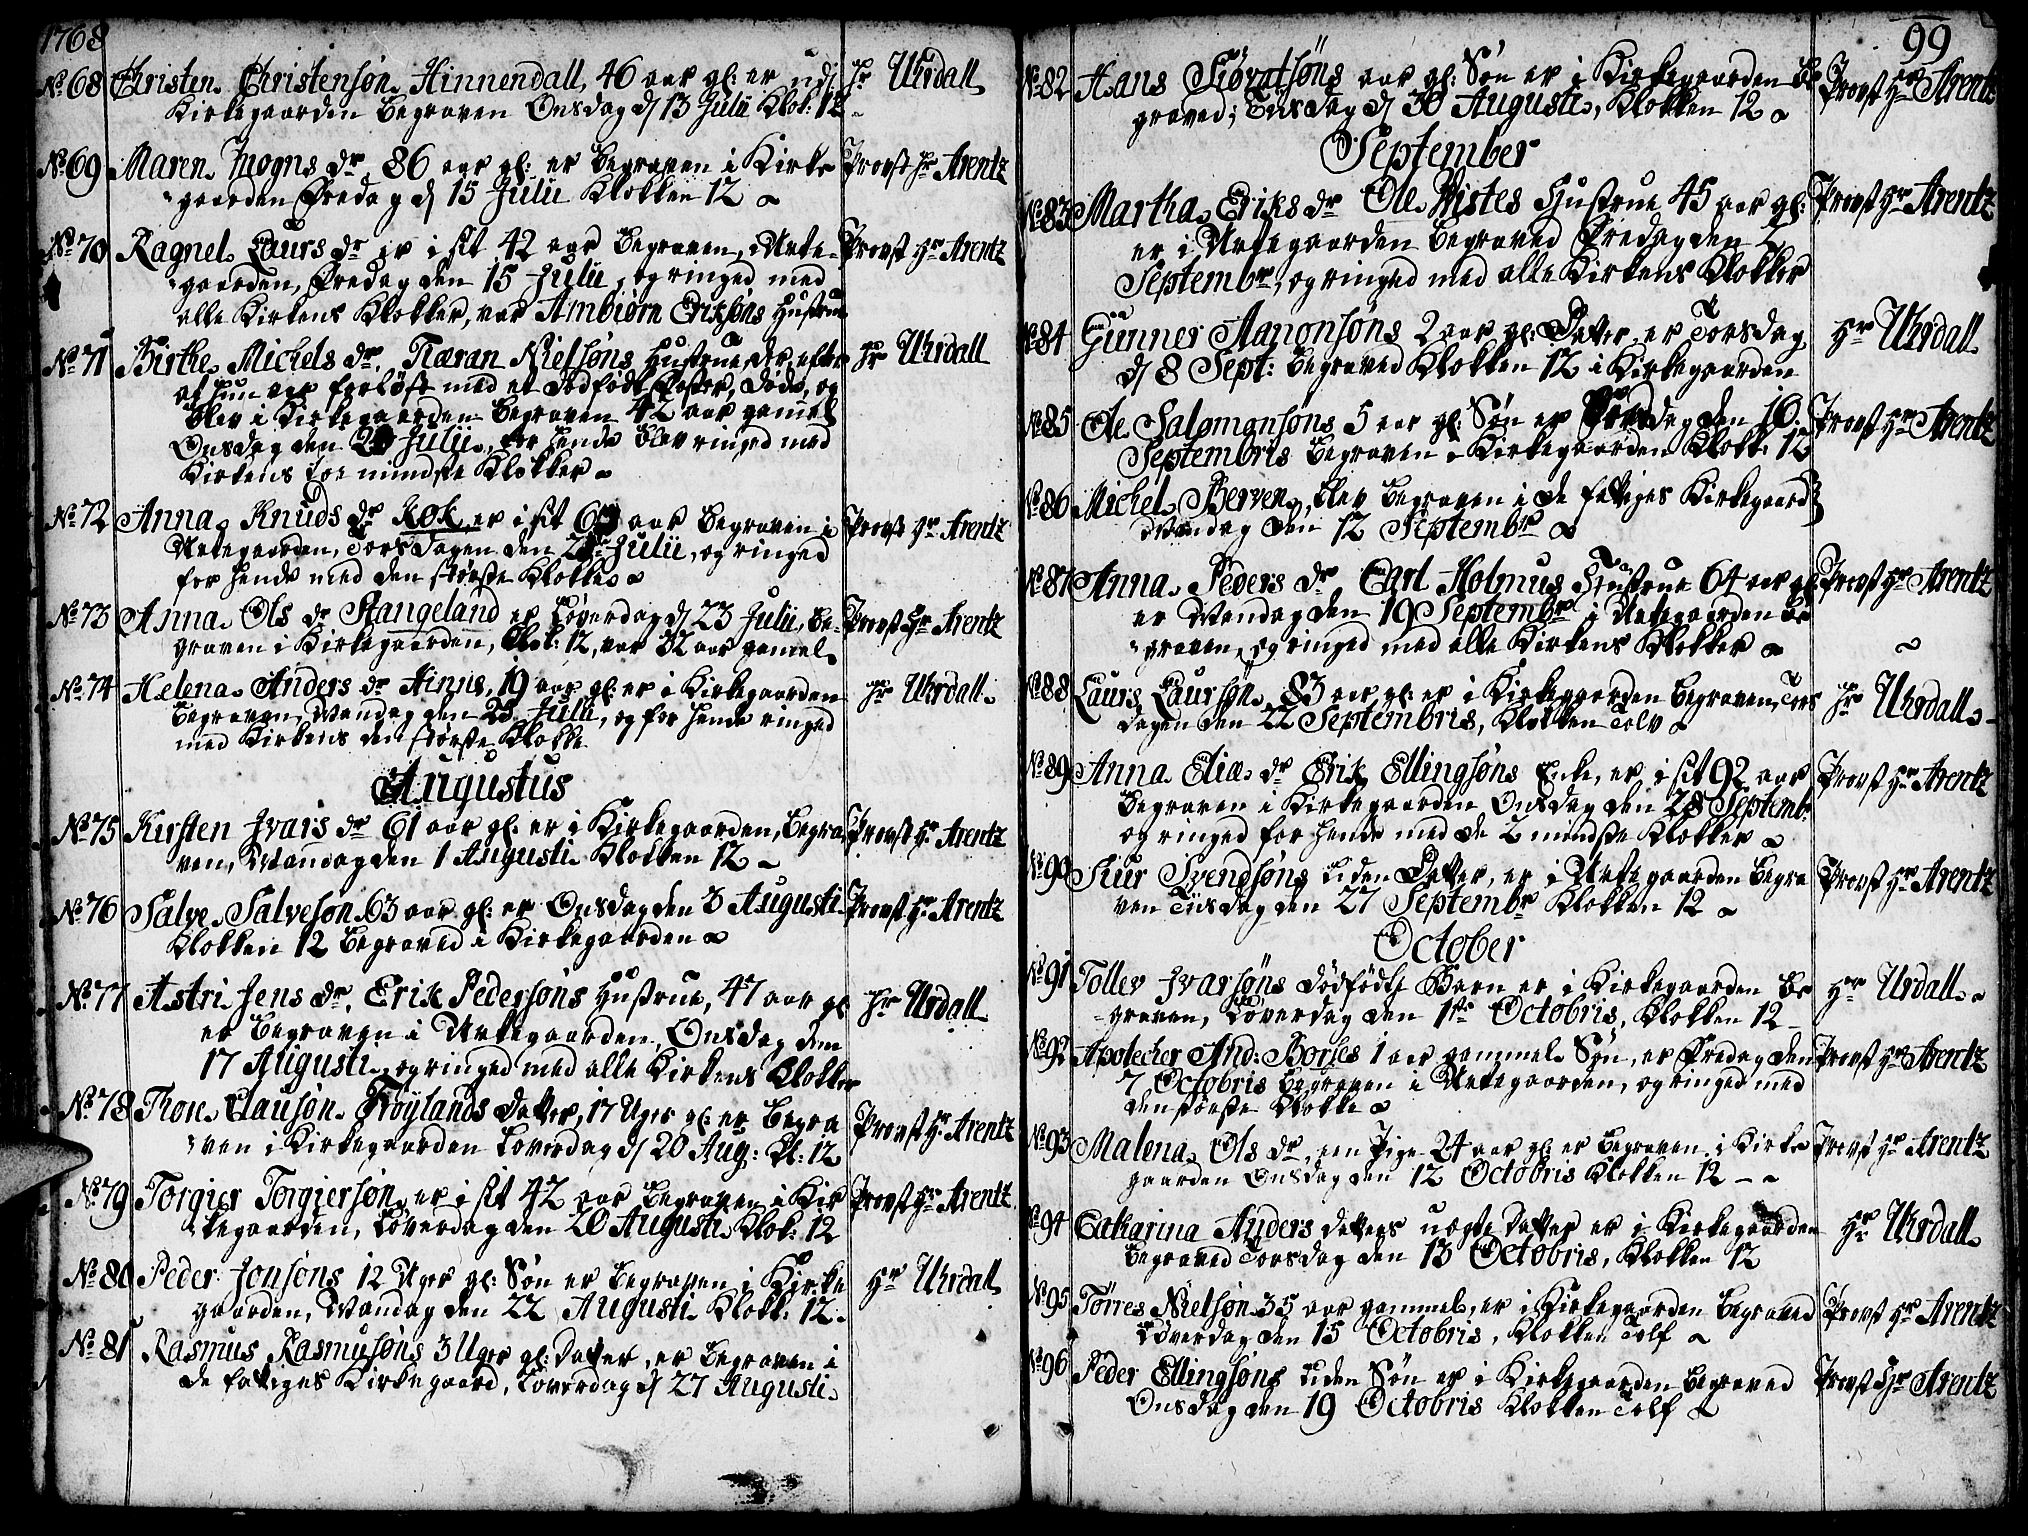 1768
No 68 Christen Christensøn Hinnendall, 46 aar gl: er udj Hr Uhrdall
Kirkegaarden Begraven Onsdag dj 13 Julii Klok: 12
No 69 Maren Mogns dr 86 aar gl: er Begraven i Kirke Provst Hr Arentz
gaarden Fredag dj 15 Julii Klokken 12
No 70 Ragnel Laurs dr er i sit 42 aar Begraven, Urte- Provst Hr Arentz
gaarden, Fredag den 15 Julii, og ringed med
alle Kirkens Klokker, var Ambiørn Eriksøns Hustrue
No 71 Birthe Michels dr, Tiæran Nielsøns Hustrue, der efter Hr Uhrdall
at hun var forløst med et dødfødt Foster, døde, og
blev i Kirkegaarden Begraven 42 aar gamel
Onsdag den 20 Julii, for hende blev ringed med
Kirkens toe mindste Klokker
No 72 Anna Knuds dr Køk er i sit aar Begraven i Provst Hr Arentz
Urtegaarden, Torsdagen den Julii, og ringed
for hende med den største Klokke
No 73 Anna Ols dr Stangeland er Løverdag dj 23 Julii, Be- Provst Hr Arentz
graven i Kirkegaarden, Klok: 12, var 32 aar gamel
No 74 Helena Anders dr Hinns, 19 aar gl: er i Kirkegaarden Hr Uhrdall
Begraven, Mandag den 25 Julii, og for hende ringed
med Kirkens den største Klokke
Augustus
No 75 Kirsten Ivars dr 61 aar gl: er i Kirkegaarden, Begra Provst Hr Arentz
ven, Mandag den 1 Augusti Klokken 12
No 76 Salve Salvesøn 63 aar gl: er Onsdag den 3 Augusti Provst Hr Arentz
Klokken 12 Begraved i Kirkegaarden
No 77 Astri Jens dr, Erik Pedersøns Hustrue, 47 aar gl: Hr Urdall
er Begraven i Urtegaarden, Onsdag den
17 Augusti, og ringed med alle Kirkens Klokker
No 78 Thore Clausøn Frøylands datter, 17 Uger gl: er Begra Provst Hr Arentz
ven i Kirkegaarden Løverdag dj 20 Aug: Kl: 12
No 79 Torgier Torgiersøn er i sit 42 aar Begraven i Kir Provst Hr Arentz
kegaarden, Løverdag den 20 Augusti Klok: 12
No 80 Peder Jonsøns 12 Uger gl: Søn er Begraven i Kirke Hr Uhrdall
gaarden, Mandag den 22 Augusti Klokk: 12
No 81 Rasmus Rasmusøns 3 Uger gl: datter, er Begraven i
de fattiges Kirkegaard, Løverdag dj 27 Augusti
99
No 82 Hans Siøvatsøns aar gl: Søn er i Kirkegaarden Be Provst Hr Arentz
graved, Tiisdag dj 30 Augusti, Klokken 12
September
No 83 Martha Eriks dr Ole Vistes Hustrue 45 aar gl: Provst Hr Arentz
er i Urtegaarden Begraved Fredag den 2
Septembr, og ringed med alle Kirkens Klokker
No 84 Gunner Aanonsøns 2 aar gl: Datter er Torsdag Hr Uhrdall
dj 8 Sept: Begraved Klokken 12 i Kirkegaarden
No 85 Ole Salomonsøns 5 aar gl: Søn er den 10 Provst Hr Arentz
Septembris Begraven i Kirkegaarden Klokk: 12
No 86 Michel Berven, blev Begraven i de fattiges Kirkegaard
Mandag den 12 Septembr
No 87 Anna Peders dr Carl Holmus Hustrue 64 aar gl: Provst Hr Arentz
er Mandag den 19 Septembr i Urtegaarden Be
graven, og ringed med alle Kirkens Klokker
No 88 Laurs Laursøn 83 aar gl: er i Kirkegaarden Begraven, Tors Hr Uhrdall
dagen den 22 Septembris, Klokken Tolv
No 89 Anna Eliæ dr Erik Ellingsøns Enke, er i sit 92 aar Provst Hr Arentz
Begraven i Kirkegaarden Onsdag den 28 Septemb:
og ringed for hende med de 2 mindste Klokker
No 90 Siur Svendsøns liden Datter, er i Urtegaarden Begra Provst Hr Arentz
ven Tiisdag den 27 Septembr Klokken 12
October
No 91 Tollev Ivarsøns dødfødte Barn er i Kirkegaarden Be Hr Urdall
graven, Løverdag den 1ste Octobris, Klokken 12
No 92 Apotecher And: Borses 1 aar gammel Søn, er Fredag den Provst Hr Arentz
7 Octobris Begraven i Urtegaarden, og ringed med
den største Klokke
No 93 Malena Ols dr, een Pige 24 aar gl: er Begraven i Kirke Provst Hr Arentz
gaarden Onsdag den 12 Octobris Klokken 12
No 94 Catharina Anders datters uægte Datter er i Kirkegaarden Hr Uhrdall
Begraved Torsdag den 13 Octobris, Klokken 12
No 95 Tørres Nielsøn 35 aar gammel, er i Kirkegaarden Begraved Provst Hr Arentz
Løverdag den 15 Octobris, Klokken Tolf
No 96 Peder Ellingsøns liden Søn er i Kirkegaarden Begraved Provst Hr Arentz
Onsdag den 19 Octobris Klokken Tolf